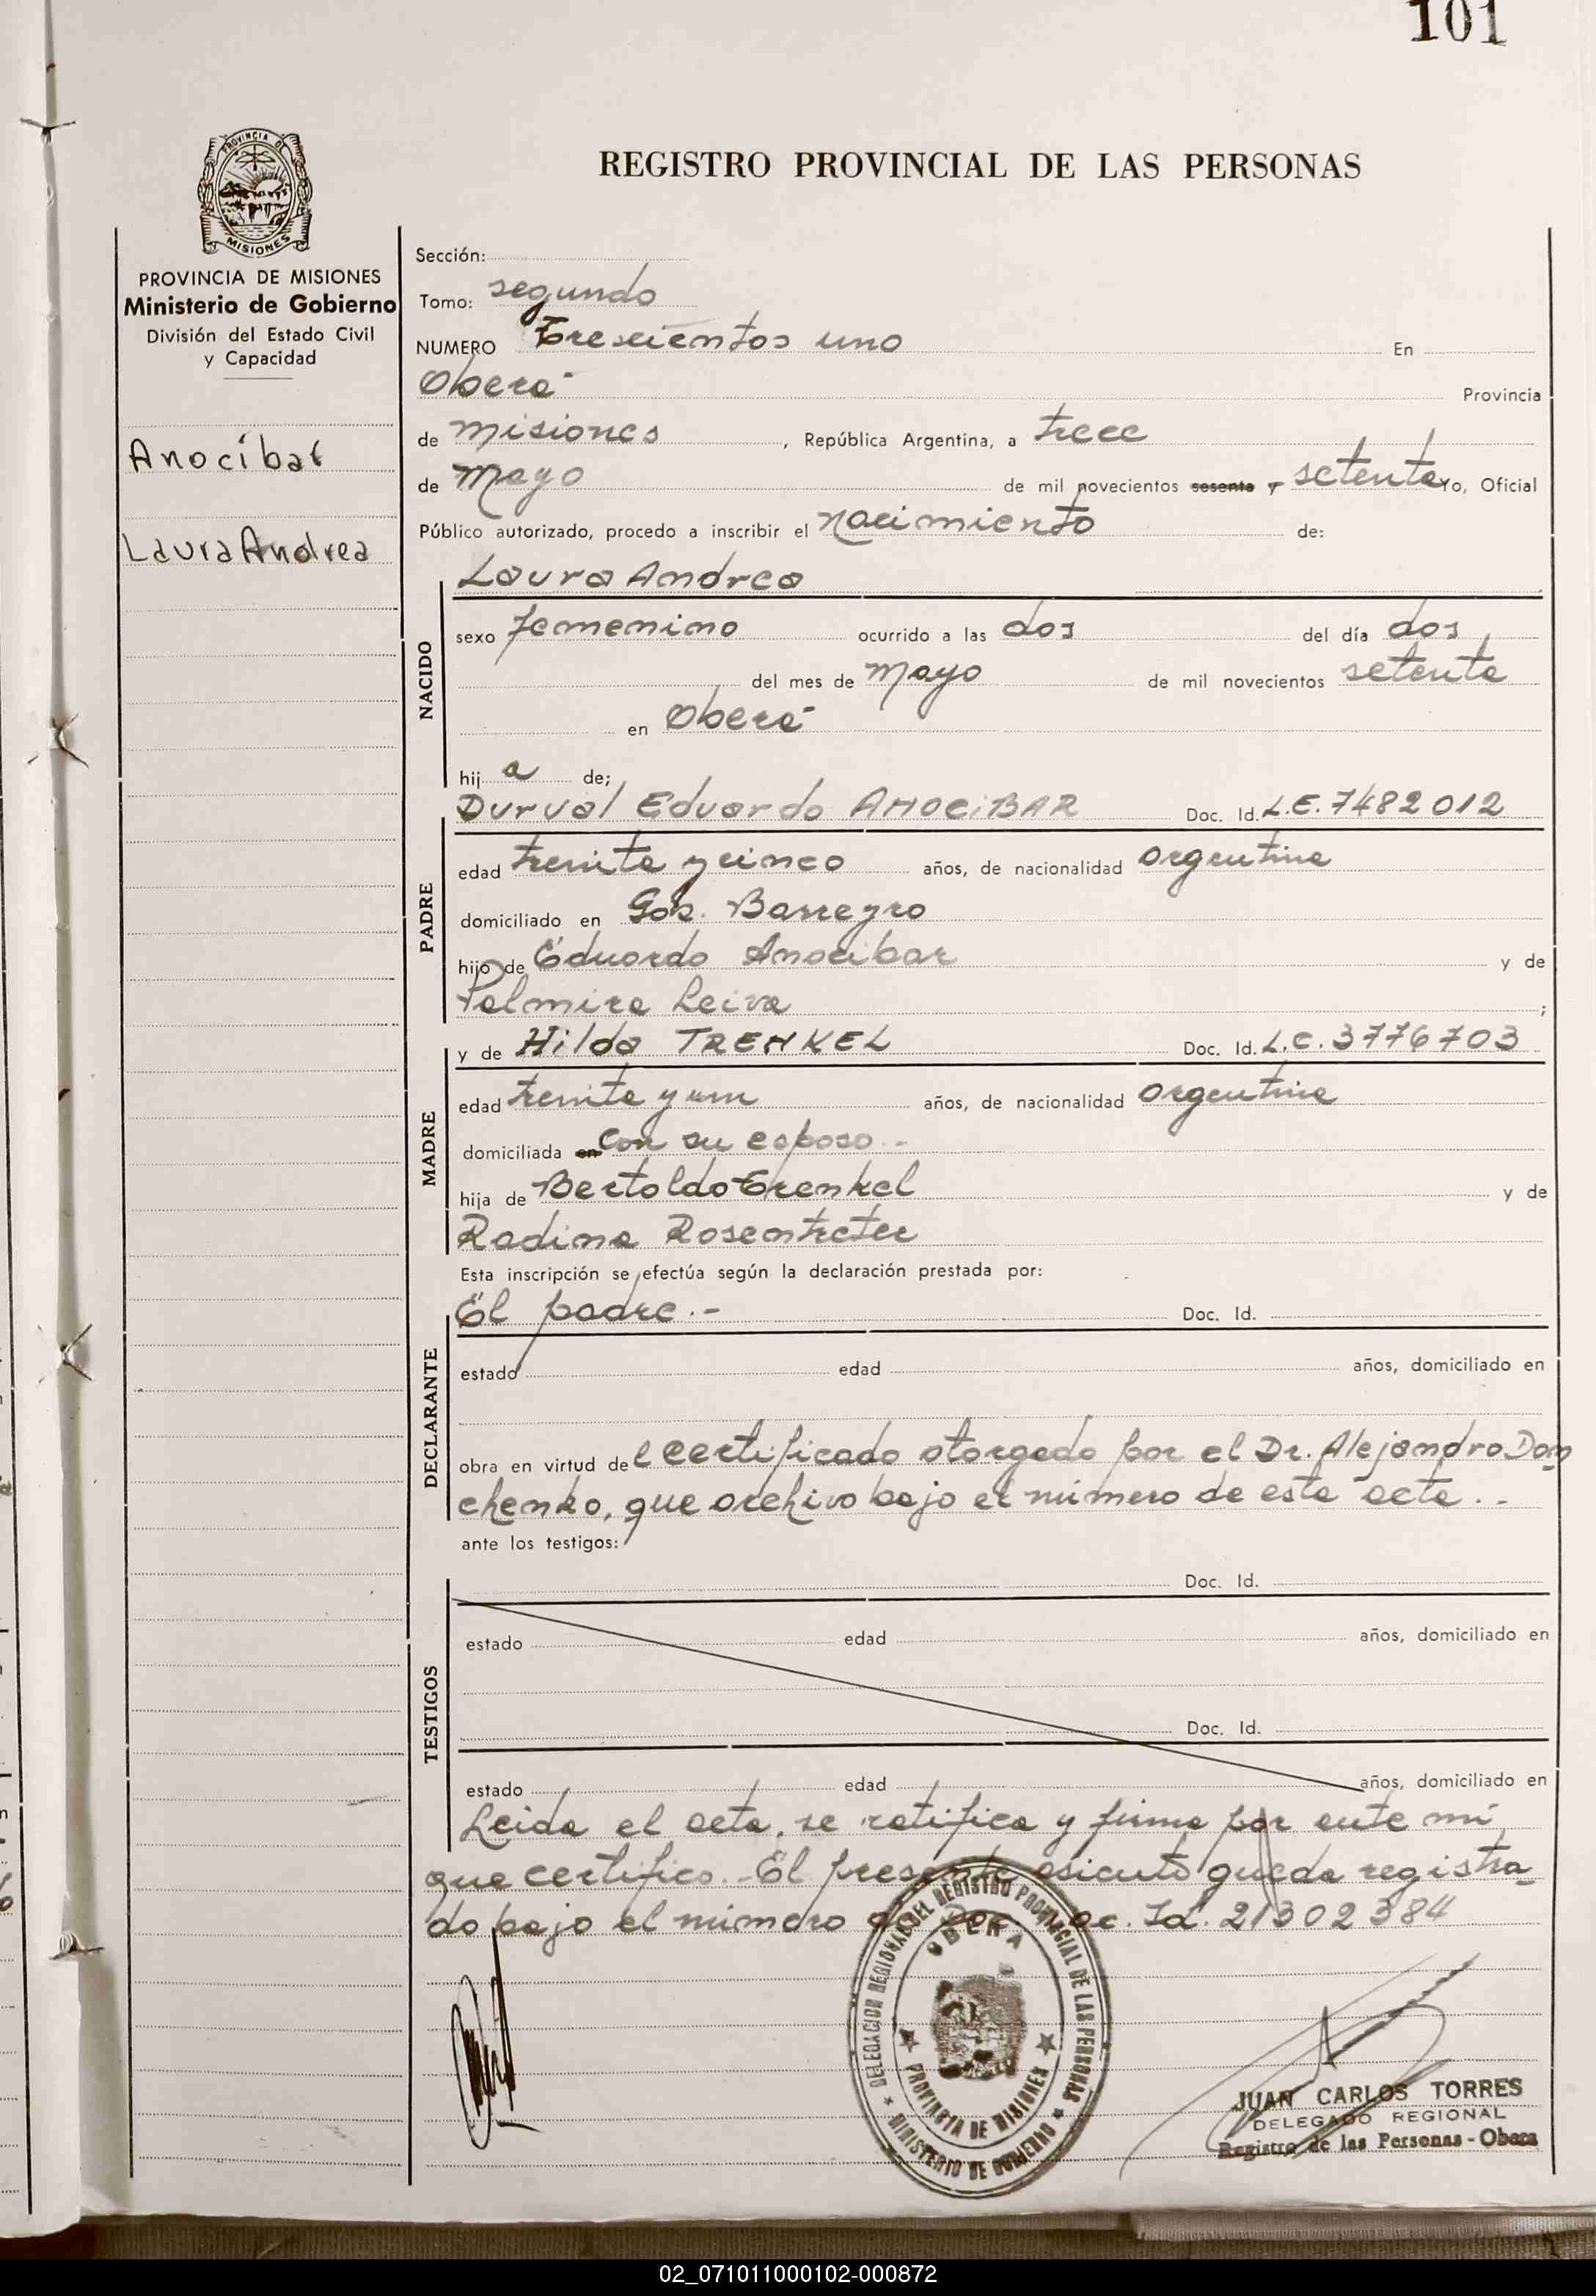 101
REGISTRO PROVINCIAL DE LAS PERSONAS
PROVINCIA DE
MISIONES
PROVINCIA DE MISIONES
Ministerio de Gobierno
División del Estado Civil
y Capacidad
Anocíbar
Laura Andrea
Sección:
Tomo: segundo
NUMERO Trescientos uno En
Oberá Provincia
de Misiones, República Argentina, a trece
de Mayo de mil novecientos sesenta y setenta Yo, Oficial
Público autorizado, procedo a inscribir el nacimiento de:
NACIDO
Laura Andrea
sexo femenino ocurrido a las dos del día dos
del mes de Mayo de mil novecientos setenta
en Oberá
hij a de;
PADRE
Durval Eduardo ANOCiBAR Doc. Id. L.E. 7482012
edad treinta y cinco años, de nacionalidad argentina
domiciliado en Gob. Barreyro
hijo de Eduardo Anocibar y de
Palmira Leiva ;
MADRE
y de Hilda TRENKEL Doc. Id. L.C. 3776703
edad treinta y un años, de nacionalidad argentina
domiciliada en con su esposo.-
hija de Bertoldo Trenkel y de
Radina Rosentreter
Esta inscripción se efectúa según la declaración prestada por:
DECLARANTE
El padre.- Doc. Id.
estado edad años, domiciliado en
obra en virtud del certificado otorgado por el Dr. Alejandro Dom
chenko, que archivo bajo el número de esta acta..-
ante los testigos:
TESTIGOS
Doc. Id.
estado edad años, domiciliado en
Doc. Id.
estado edad años, domiciliado en
Leida el acta, se ratifica y firma por ante mí
que certifico.-El presente asiento queda registra-
do bajo el número de Doc. Id. 21302384
DELEGACION REGIONAL DEL REGISTRO PROVINCIAL DE LAS PERSONAS
OBERA
PROVINCIA DE MISIONES
MINISTERIO DE GOBIERNO
JUAN CARLOS TORRES
DELEGADO REGIONAL
Registro de las Personas - Obera
02_071011000102-000872